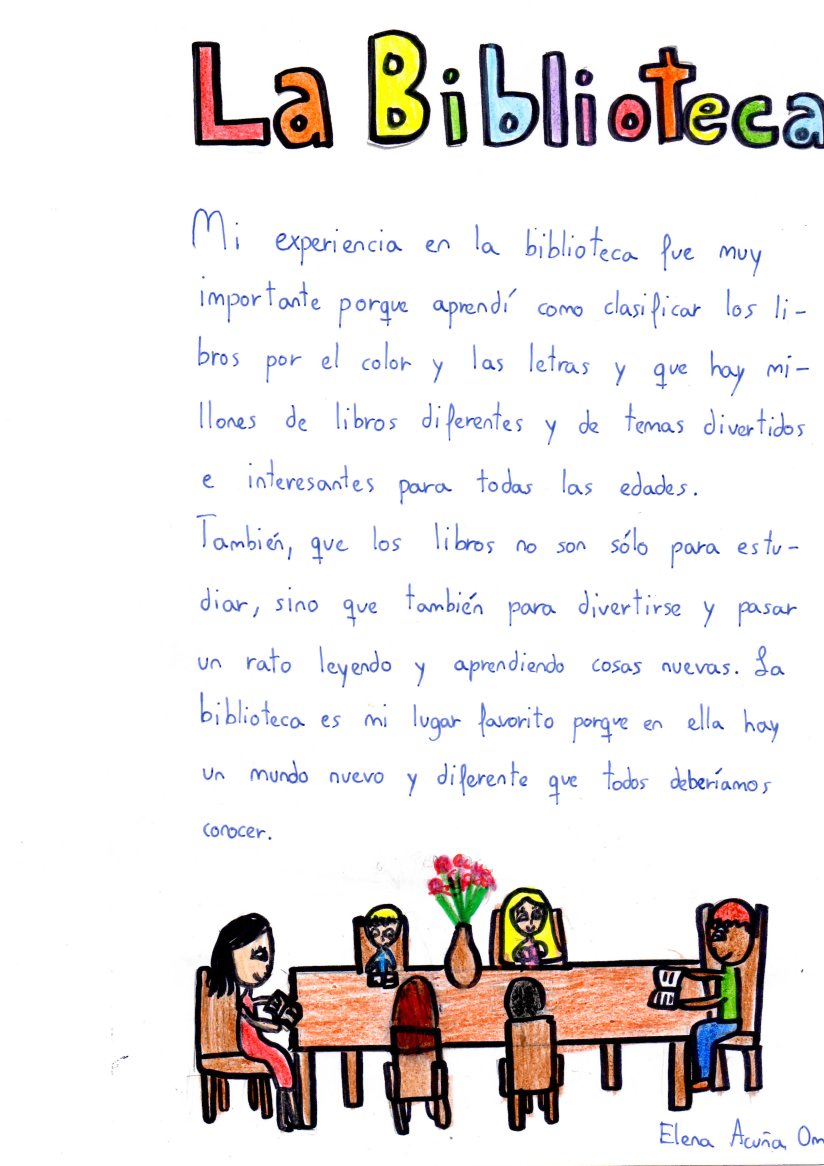 La Biblioteca
Mi experiencia en la biblioteca fue muy
importante porque aprendí como clasificar los li-
bros por el color y las letras y que hay mi-
llones de libros diferentes y de temas divertidos
e interesantes para todas las edades.
También, que los libros no son sólo para estu-
diar, sino que también para divertirse y pasar
un rato leyendo y aprendiendo cosas nuevas. La
biblioteca es mi lugar favorito porque en ella hay
un mundo nuevo y diferente que todos deberíamos
conocer.
Elena Acuña